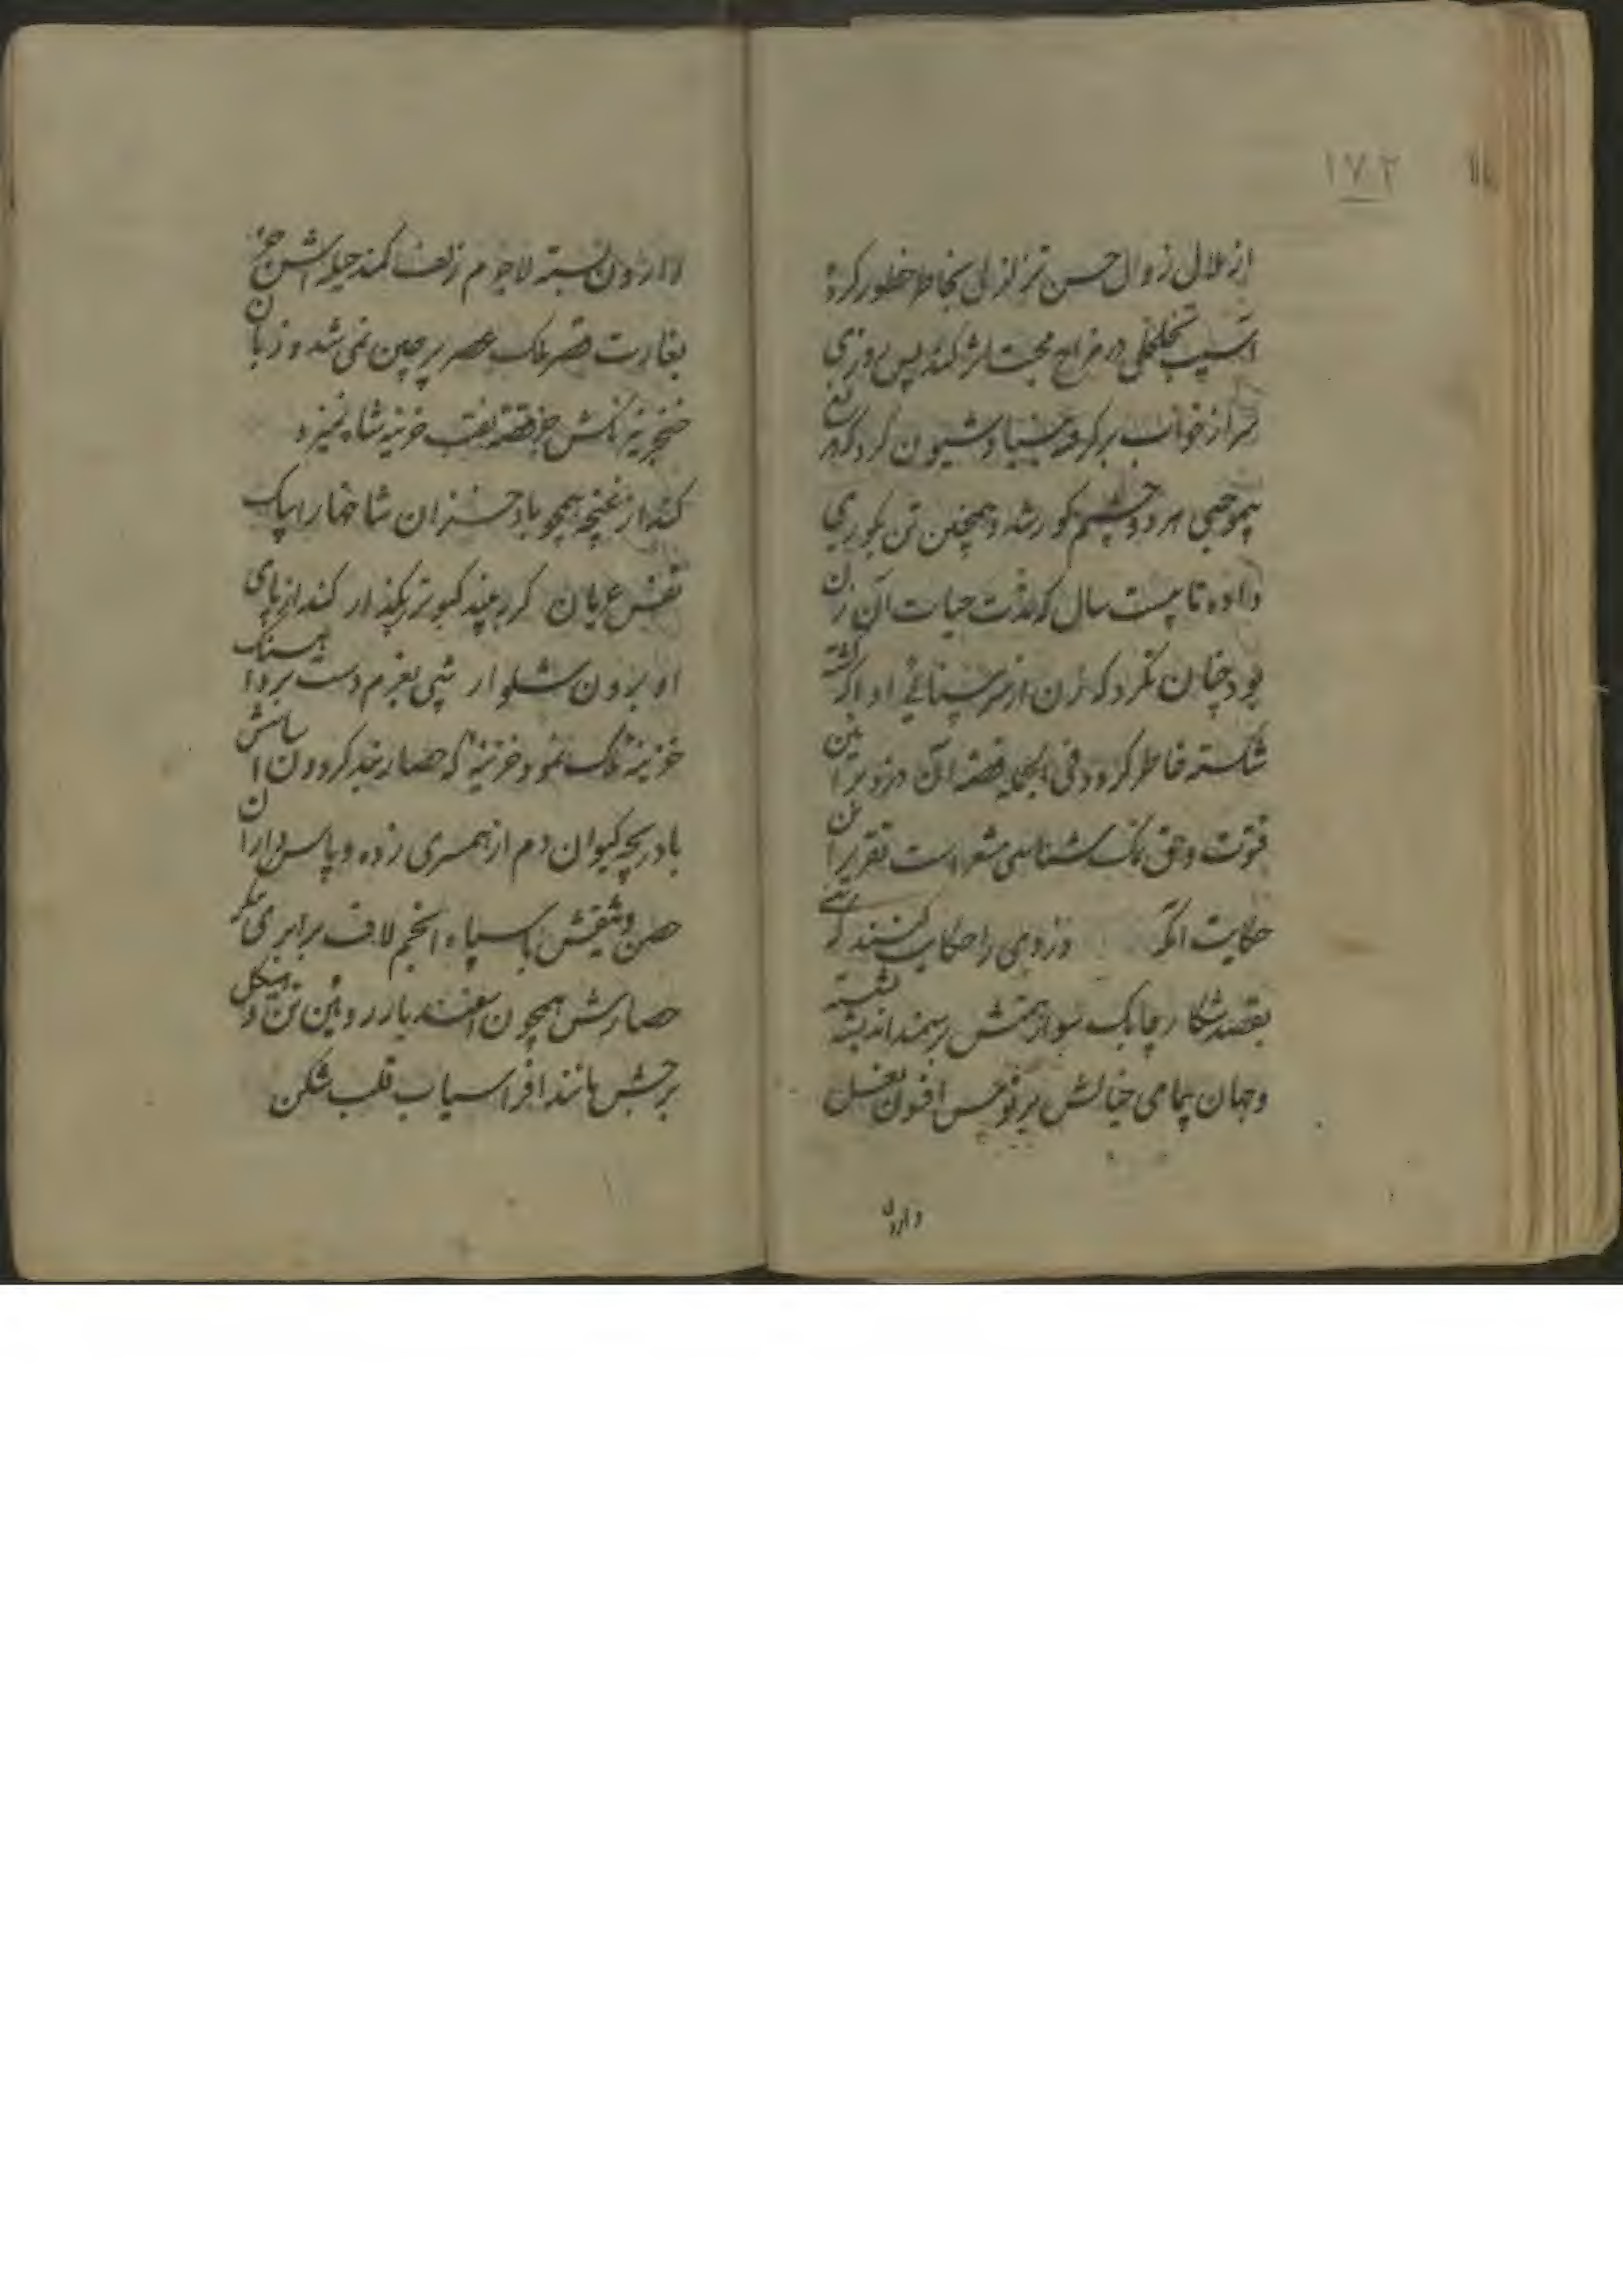 ۱۷۲
از ملال زوال حسن تزلزلی بخاطر خطور کرده
آسیب تخلخلی در مزاج محبت اثر کند پس روزی
سر از خواب بر کرفته بنیاد شیون کرد که
بیموجبی هر دو چشمم کور شد و همچنین تن بکوری
داده تا بیست سال که مدت حیات آن زن
بود چنان نکرد که زن از سر بینائی او آکه کشته
شکسته خاطر کردد فی الجمله قصه آن دزد بر این
فتوت و حق نمک شناسی مشعر است تقریر این
حکایت آنکه دزدی را حکایت کنند که
بقصد شکار چابک سوار همتش بر سمند اندیشه نشسته
و جهان پیمای خیالش بر توسن افسون نعل
وارون
وارون بسته لاجرم زلف کمند حیله اش جز
بغارت قصر ملک عصر پر چین نمی شد و زبان
خنجر تیزناکش جز قصه نقب خزینه شاه نمیزد
کند از غنچه همچو باد خزان شاخها را پاک
نفس عریان کر ببیند کبوتر بکذار کند از پای
او برون شلوار شبی بعزم دست برد آهنک
خزینه ملک نمود خزینه که حصار خد کردون اساسش
با دریچه کیوان دم از همسری زده و پاسداران
حصن وثیقش با سپاه انجم لاف برابری
حصارش همچون اسفندیار روئین تن و هیکل
برجش مانند افراسیاب قلب شکن